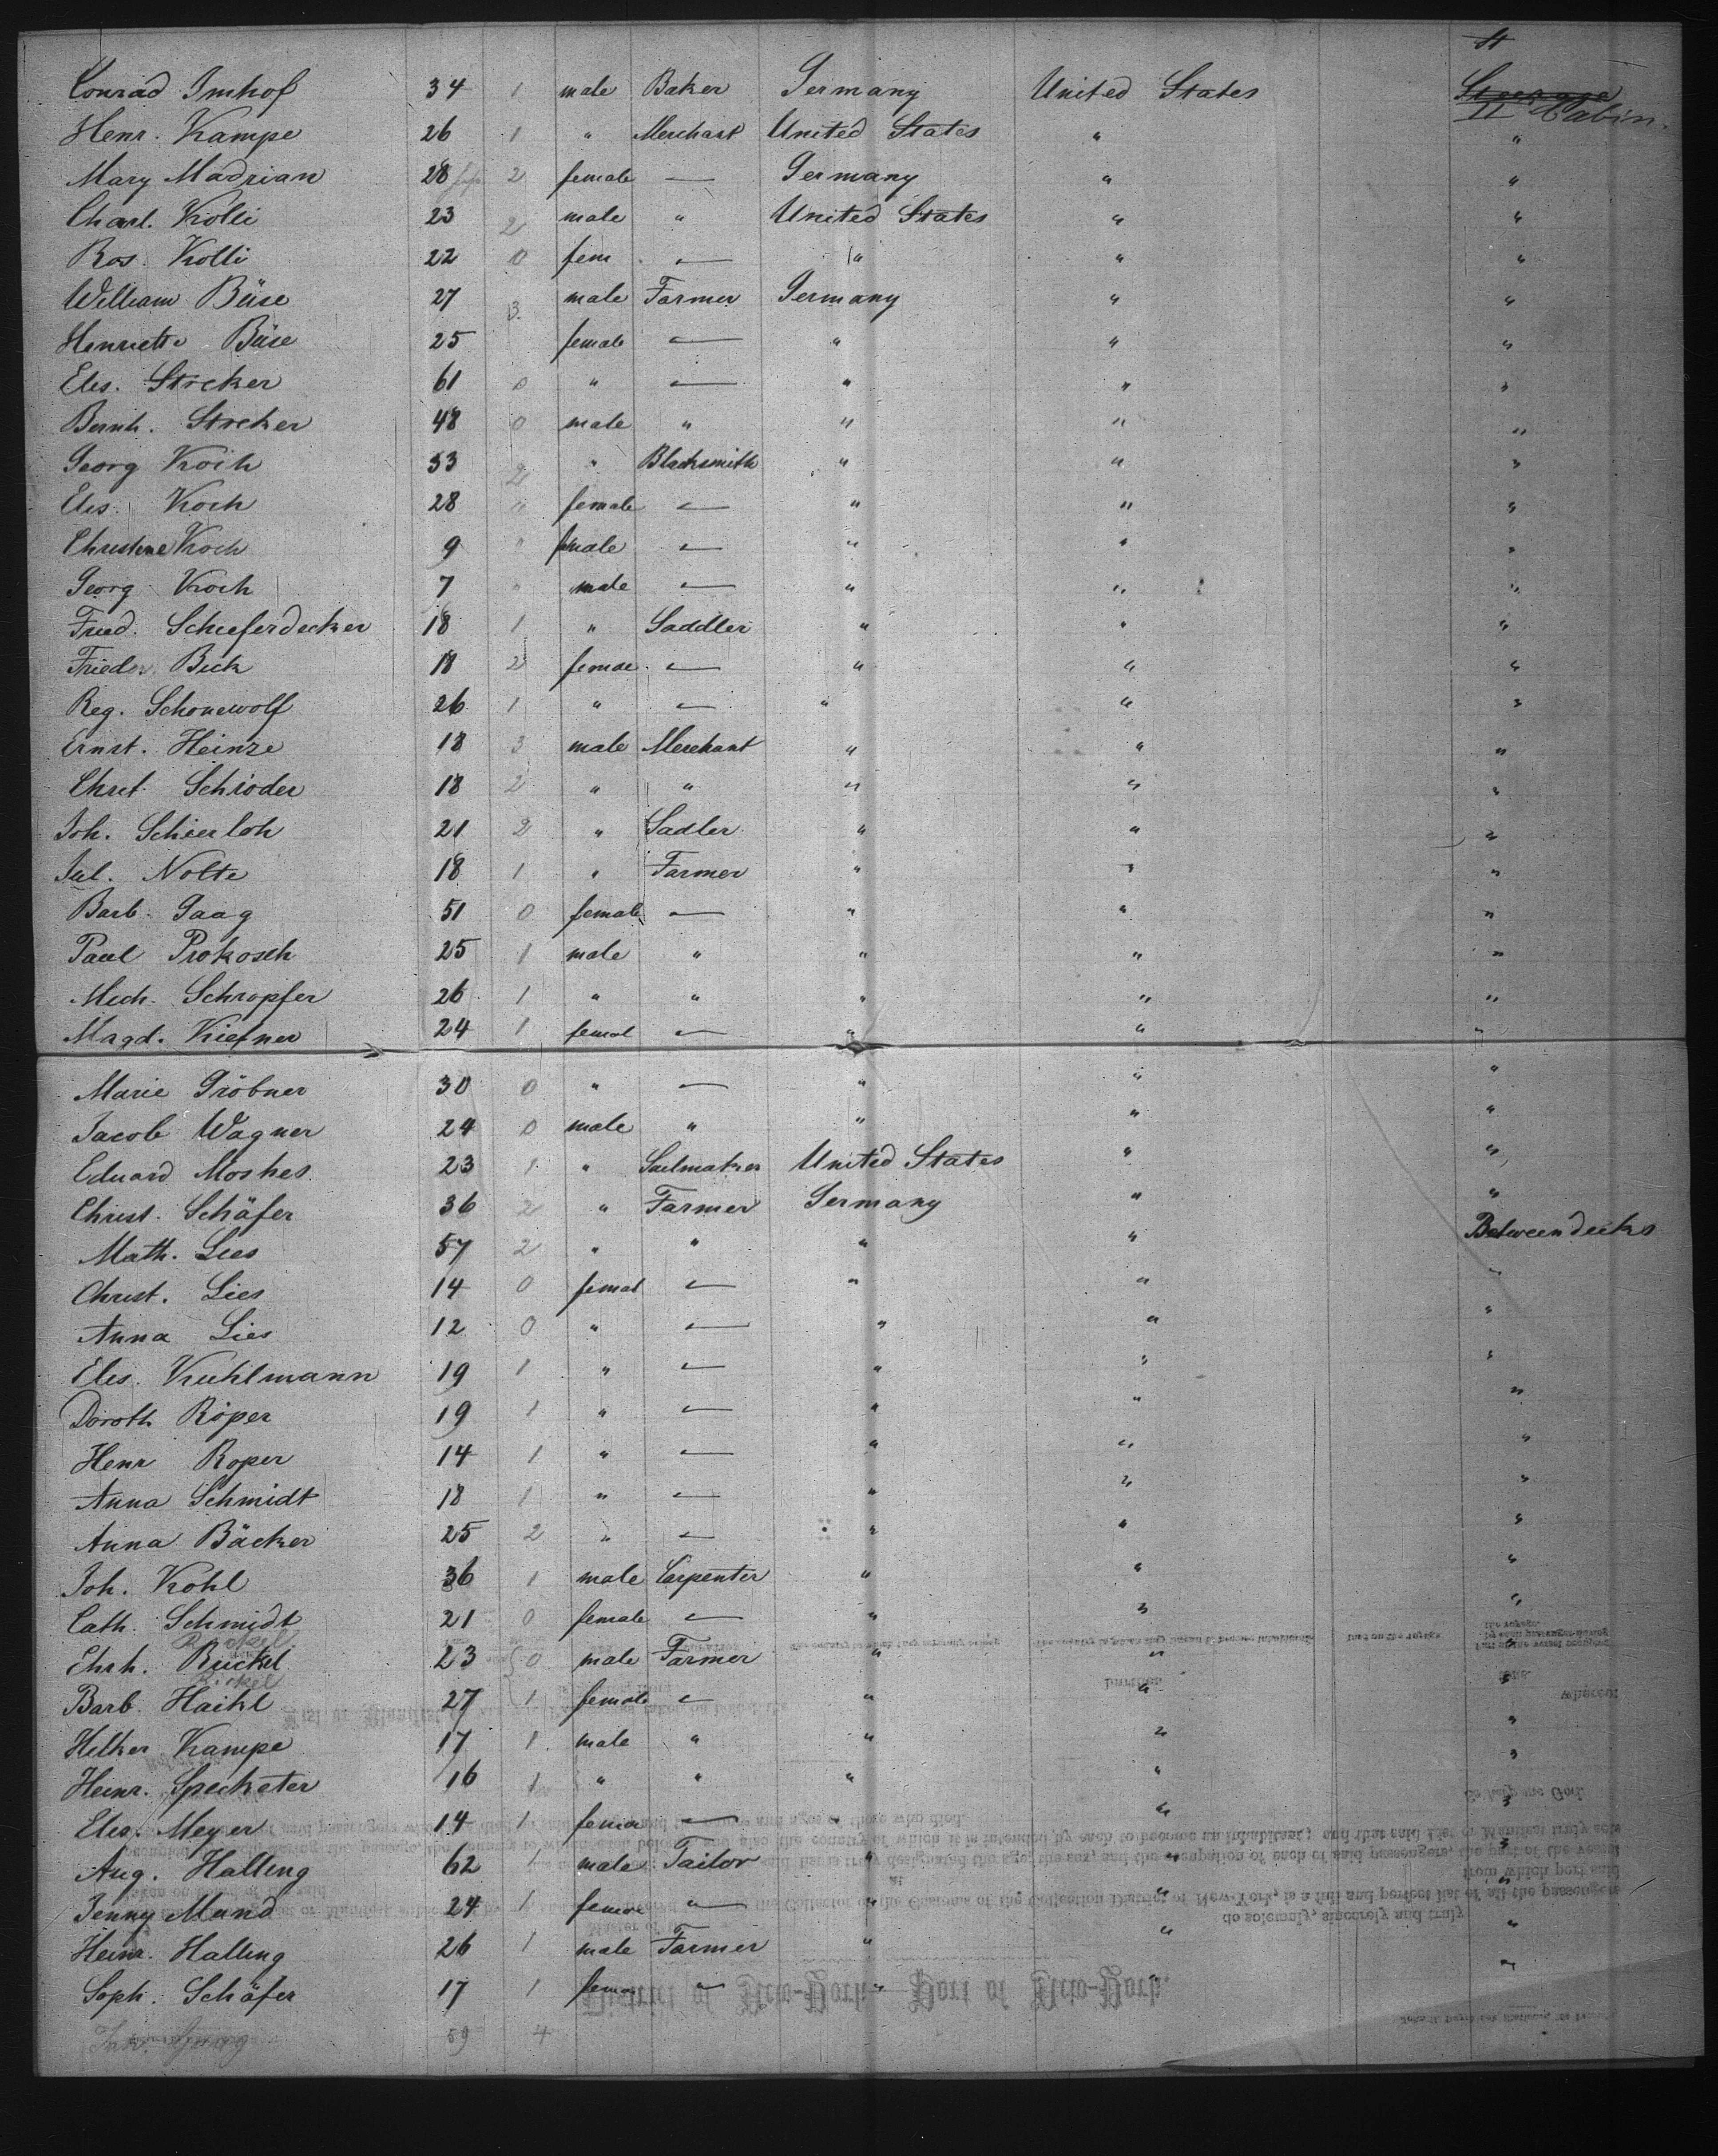 Conrad Imhof 34 1 male Baker Germany United States Steerage II Cabin.
Henr. Kampe 26 1 " Merchant United States " "
Mary Madrian 28 2 female — Germany " "
Charl. Kolli 23 2 male " United States " "
Ros. Kolli 22 0 fem — " " "
William Büse 27 3 male Farmer Germany " "
Henriette Büse 25 female — " " "
Eles. Streker 61 0 " — " " "
Bernh. Streker 48 0 male " " " "
Georg Koch 33 2 " Blacksmith " " "
Eles. Koch 28 " female — " " "
Christine Koch 9 " female — " " "
Georg Koch 7 " male — " " "
Fried. Schieferdecker 18 1 " Saddler " " "
Frieder. Bick 18 2 femae — " " "
Reg. Schonewolf 26 1 " — " " "
Ernst. Heinze 18 3 male Merchant " " "
Christ. Schröder 18 2 " " " " "
Joh. Schierloh 21 2 " Sadler " " "
Jul. Nolte 18 1 " Farmer " " "
Barb. Gaag 51 0 female — " " "
Paul Prokosch 25 1 male " " " "
Mich. Schropfer 26 1 " " " " "
Magd. Kiefner 24 1 femal — " " "
Marie Gröbner 30 0 " — " " "
Jacob Wagner 24 0 male " " " "
Eduard Moshes 23 1 " Sailmaker United States " "
Christ. Schäfer 36 2 " Farmer Germany " "
Math. Lies 57 2 " " " " Between decks
Christ. Lies 14 0 femal — " " "
Anna Lies 12 0 " — " " "
Eles. Kuhlmann 19 1 " — " " "
Doroth Röper 19 1 " — " " "
Henr Roper 14 1 " — " " "
Anna Schmidt 18 1 " — " " "
Anna Bäcker 25 2 " — " " "
Joh. Kohl 36 1 male Carpenter " " "
Cath. Schmidt 21 0 female — " " "
Ehrh. Rückel 23 0 male Farmer " " "
Barb. Haikl 27 1 female — " " "
Helker Kampe 17 1 male " " " "
Heinr. Speckater 16 1 " " " " "
Eles. Meyer 14 1 femal — " " "
Aug. Halling 62 1 male Tailor " " "
Jenny Mund 24 1 femal — " " "
Heinr. Halling 26 1 male Farmer " " "
Soph. Schäfer 17 1 femal — " " "
59 4
District of New-York—Port of New-York.
do solemnly, sincerely and truly